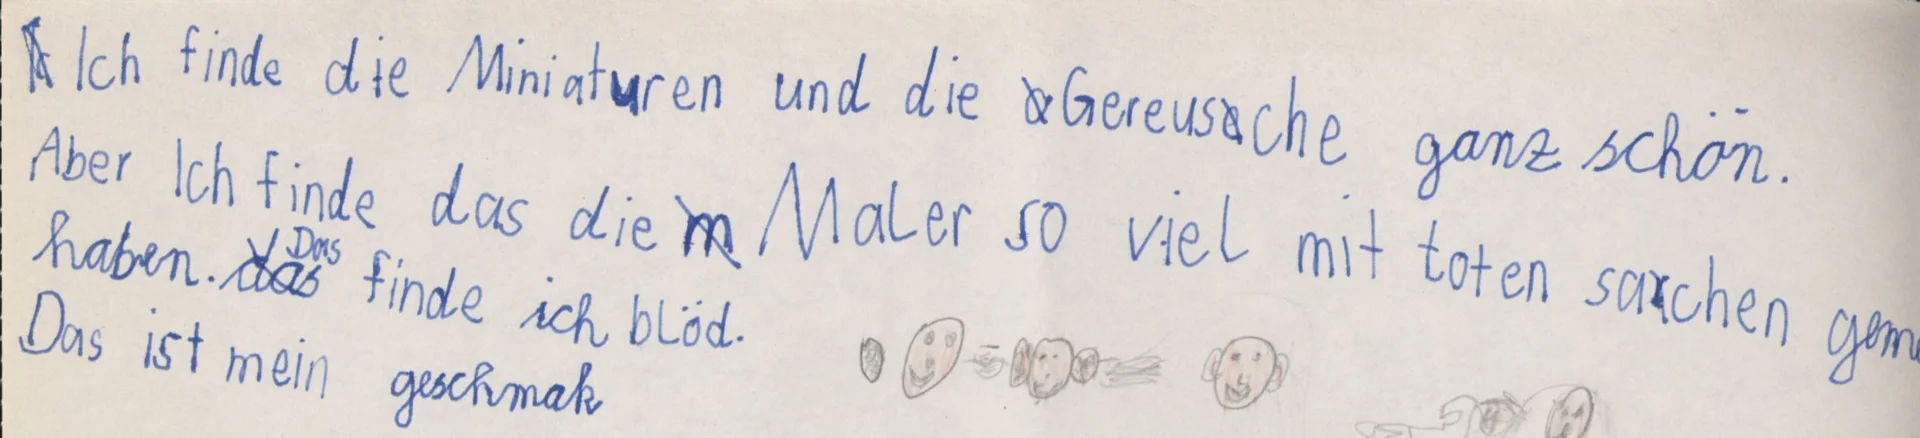 Ich finde die Miniaturen und die Gereusche ganz schön.
Aber Ich finde das die Maler so viel mit toten sachen gem
haben. Das finde ich blöd.
Das ist mein geschmak